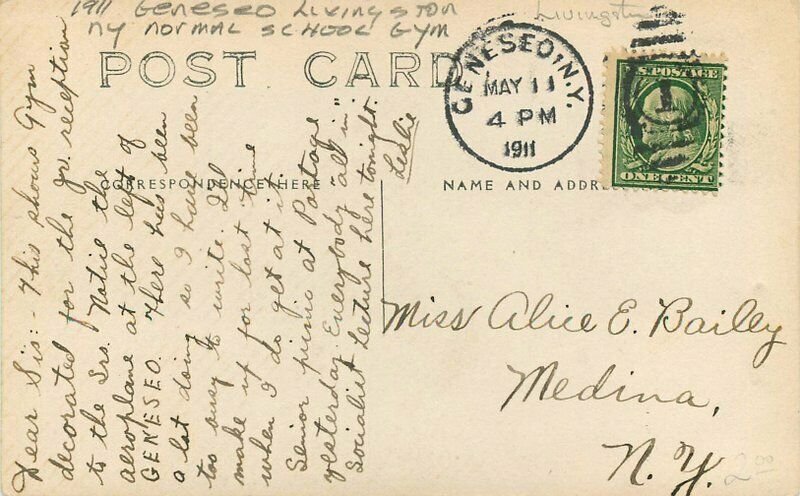 1911 GENESEO LIVINGSTON
NY NORMAL SCHOOL GYM
Livingston
POST CARD
GENESEO, N.Y.
MAY 11
4 PM
1911
U.S. POSTAGE
ONE CENT
CORRESPONDENCE HERE
NAME AND ADDRE
Dear Sis:- This shows Gym
decorated for the Jr. reception
to the Srs. Notice the
aeroplane at the left of
GENESEO. There has been
a lot doing so I have been
too busy to write. I'll
make up for lost time
when I do get at it.
Senior picnic at Portage
yesterday. Everybody "all in".
Socialist Lecture here tonight.
Leslie
Miss Alice E. Bailey
Medina,
N.Y.
2.00